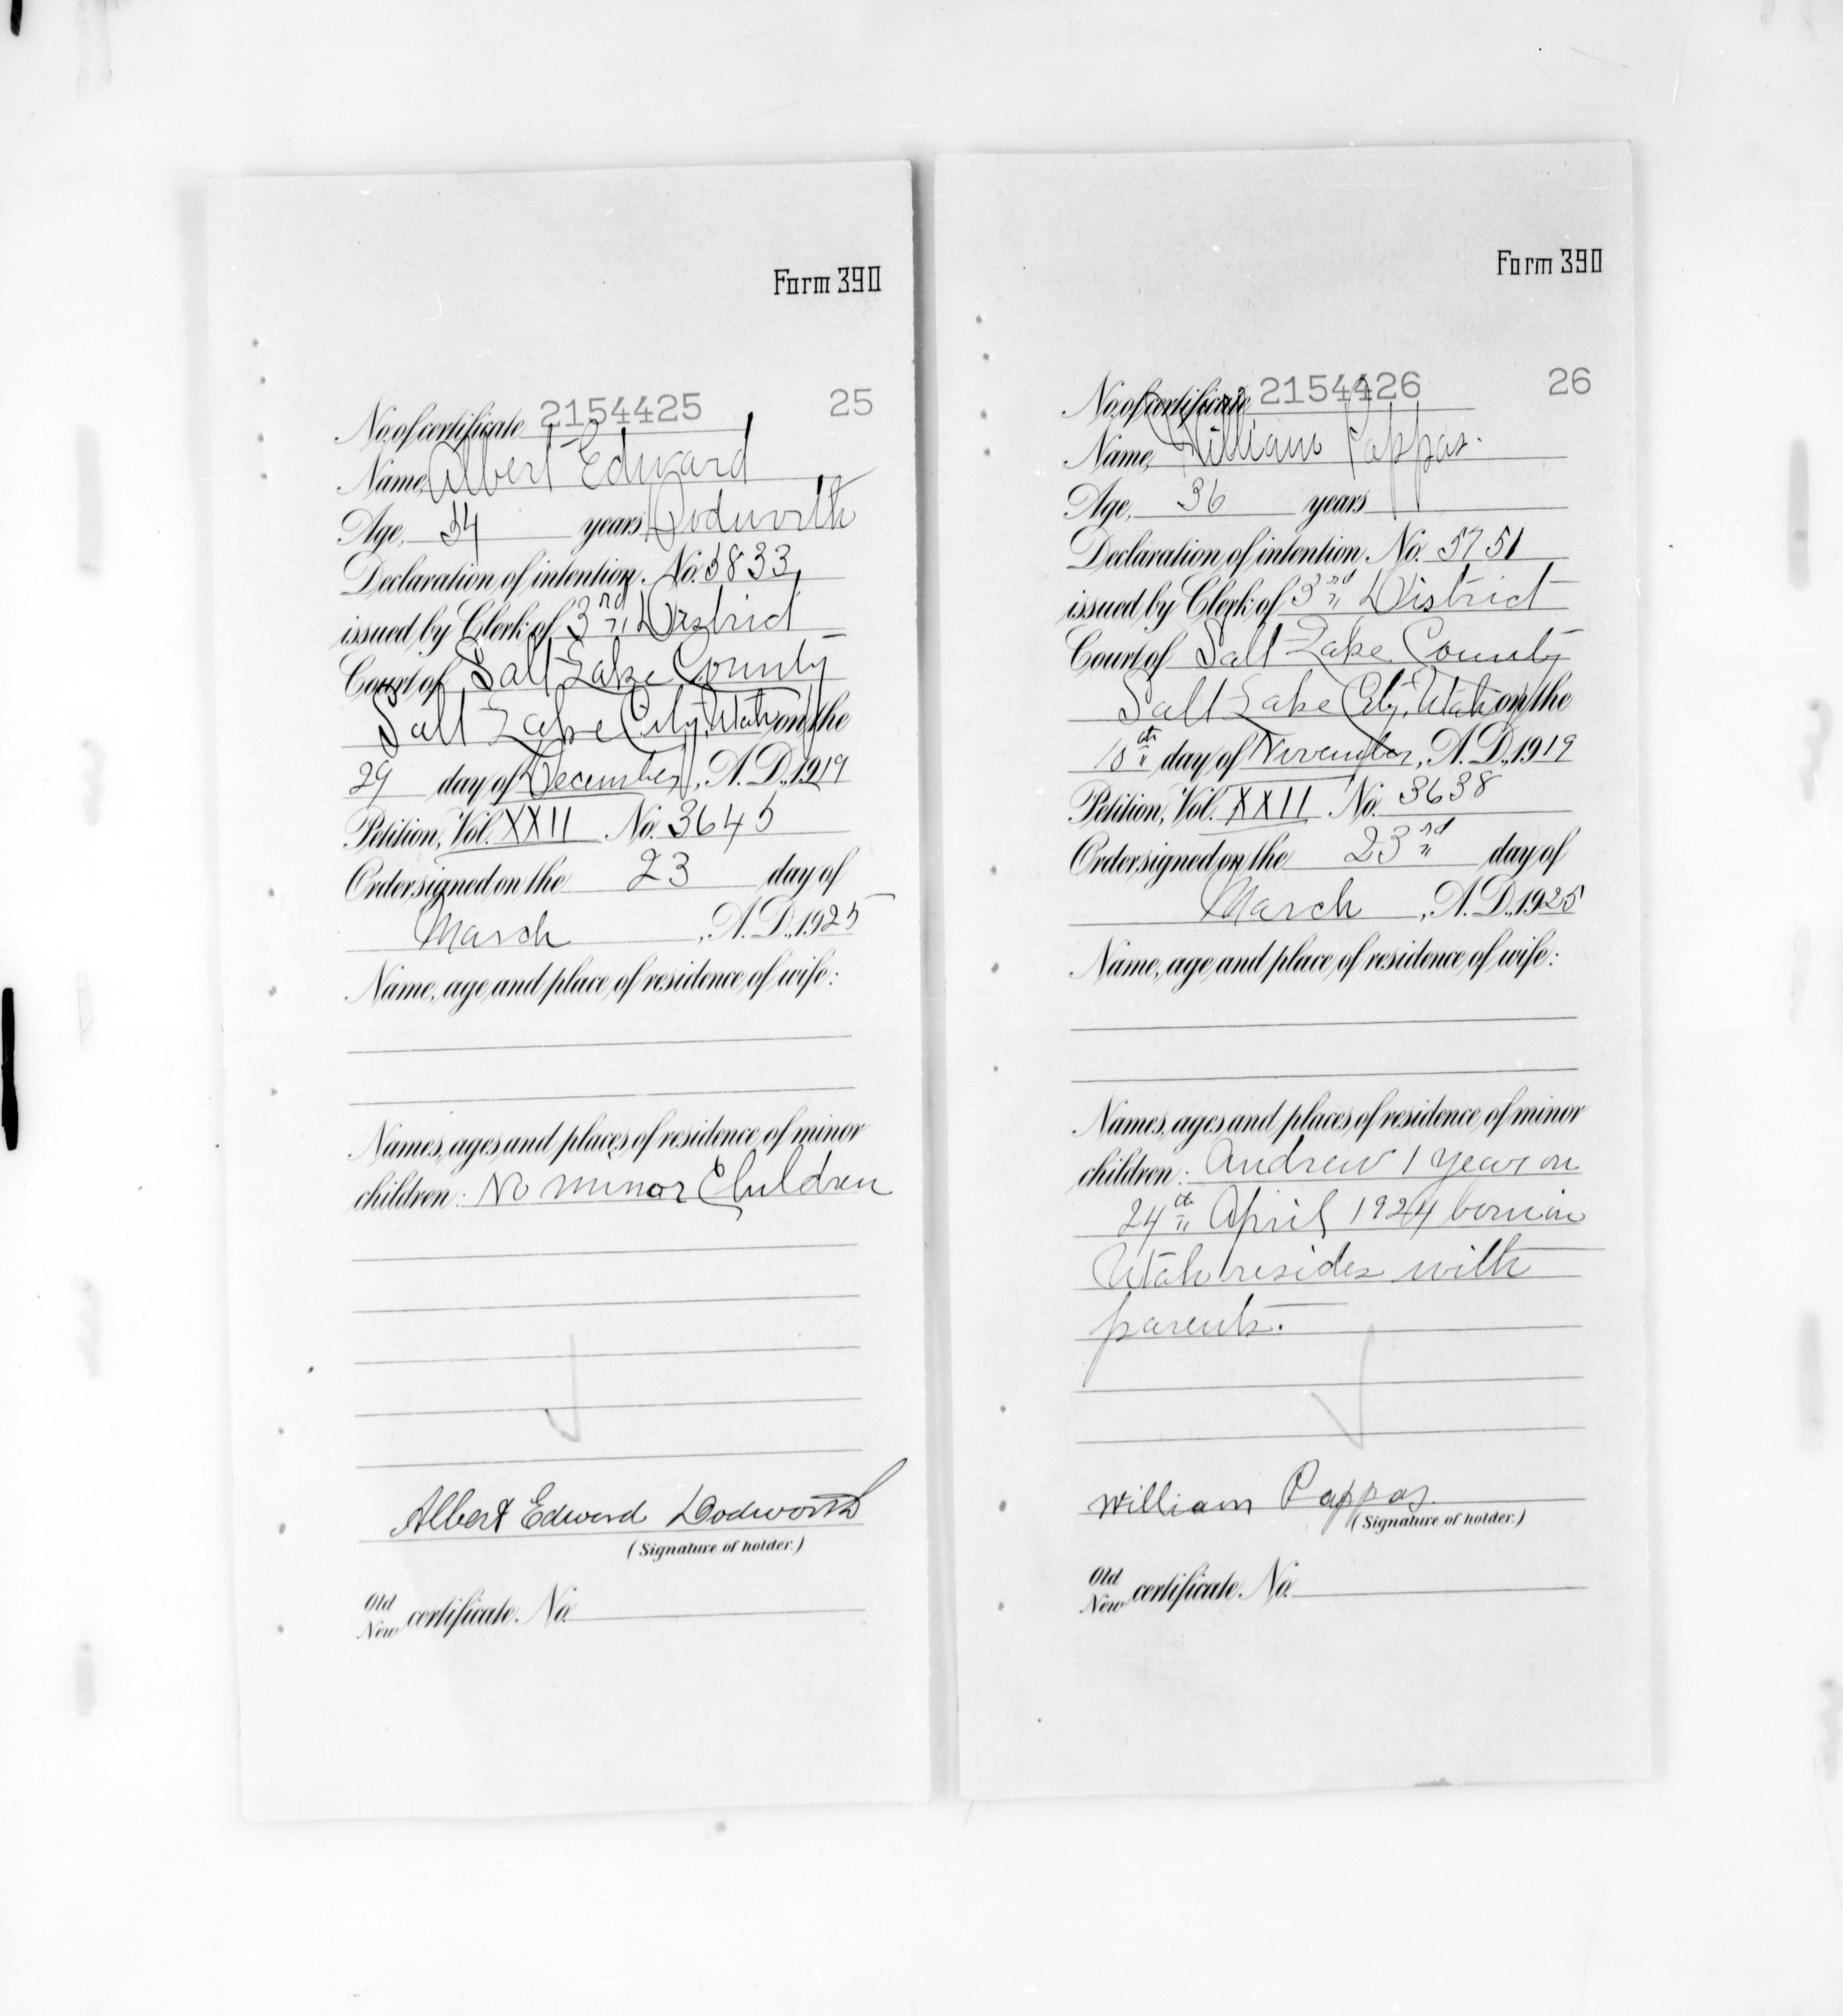 Form 390
No. of certificate 2154425 25
Name, Albert Edward
Age, 34 years Dodworth
Declaration of intention No. 5833,
issued by Clerk of 3rd District
Court of Salt Lake County
Salt Lake City, Utah on the
29 day of December, A. D., 1919
Petition, Vol. XXII No. 3645
Order signed on the 23 day of
March, A. D., 1925
Name, age and place of residence of wife:
Names, ages and places of residence of minor
children: No minor Children
Albert Edward Dodworth
(Signature of holder.)
Old
New certificate No.
Form 390
No. of certificate 2154426 26
Name, William Pappas.
Age, 36 years
Declaration of intention No. 5751
issued by Clerk of 3rd District
Court of Salt Lake County
Salt Lake City, Utah on the
10th day of November, A. D., 1919
Petition, Vol. XXII No. 3638
Order signed on the 23rd day of
March, A. D., 1925
Name, age and place of residence of wife:
Names, ages and places of residence of minor
children: Andrew 1 year on
24th April 1924 born in
Utah resides with
parents.
William Pappas.
(Signature of holder.)
Old
New certificate No.